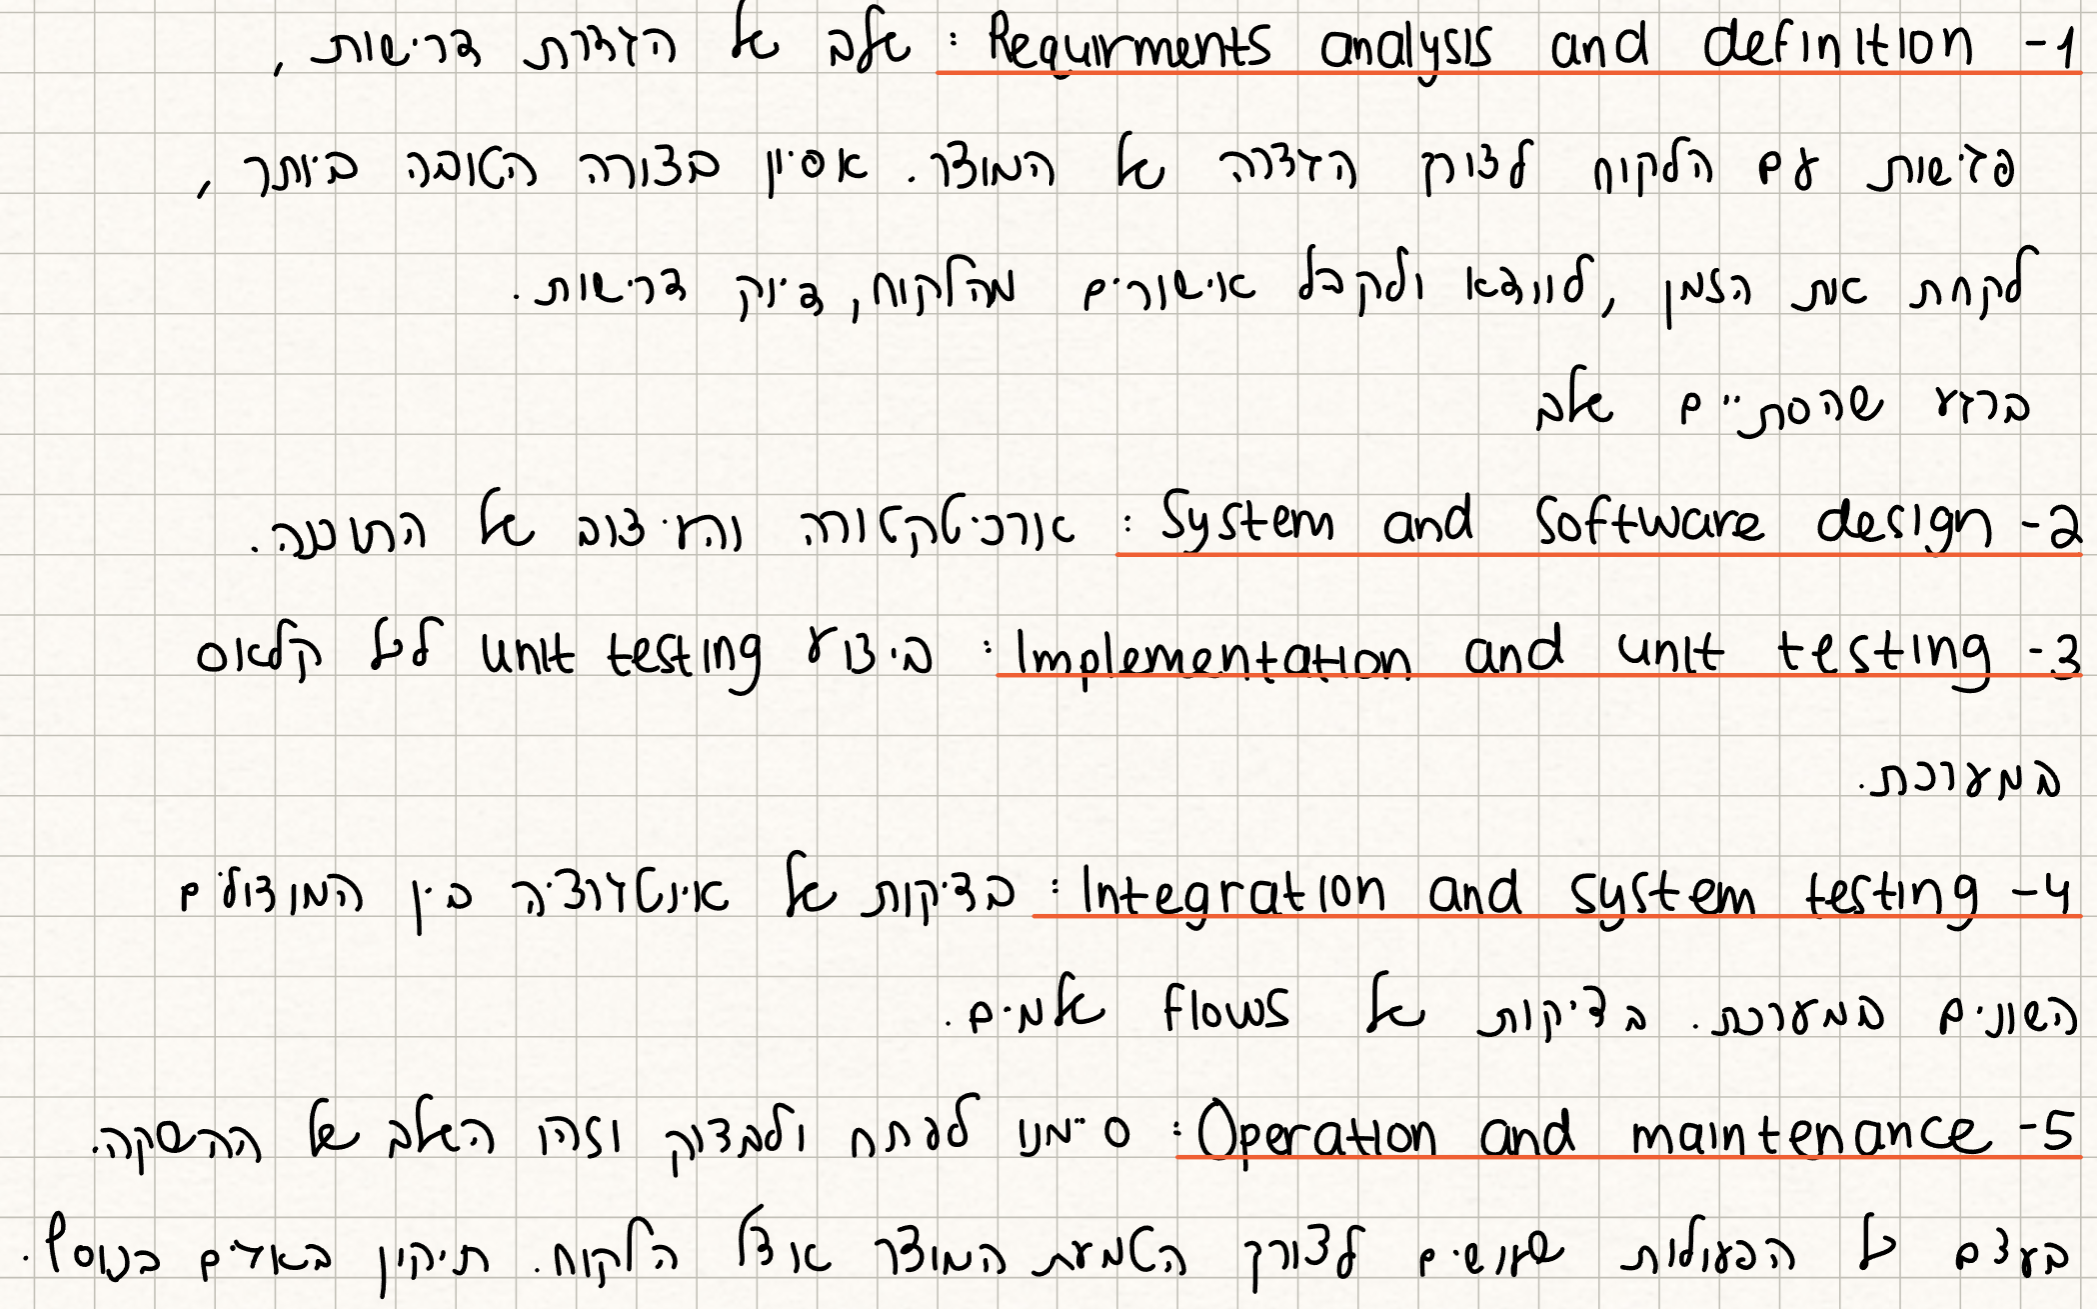 1- Requirments analysis and definition : שלב של הגדרת דרישות,
פגישות עם הלקוח לצורך הגדרה של המוצר. אפיון בצורה הטובה ביותר,
לקחת את הזמן, לוודא ולקבל אישורים מהלקוח, דיוק דרישות.
ברגע שהסתיים שלב
2- System and software design : ארכיטקטורה והעיצוב של התוכנה.
3- Implementation and unit testing : ביצוע unit testing לכל קלאס
במערכת.
4- Integration and system testing : בדיקות של אינטגרציה בין המודולים
השונים במערכת. בדיקות של flows שלמים.
5- Operation and maintenance : סיימנו לפתח ולבדוק וזהו השלב של ההשקה.
בעצם כל הפעולות שעושים לצורך הטמעת המוצר אצל הלקוח. תיקון באגים בנוסף.